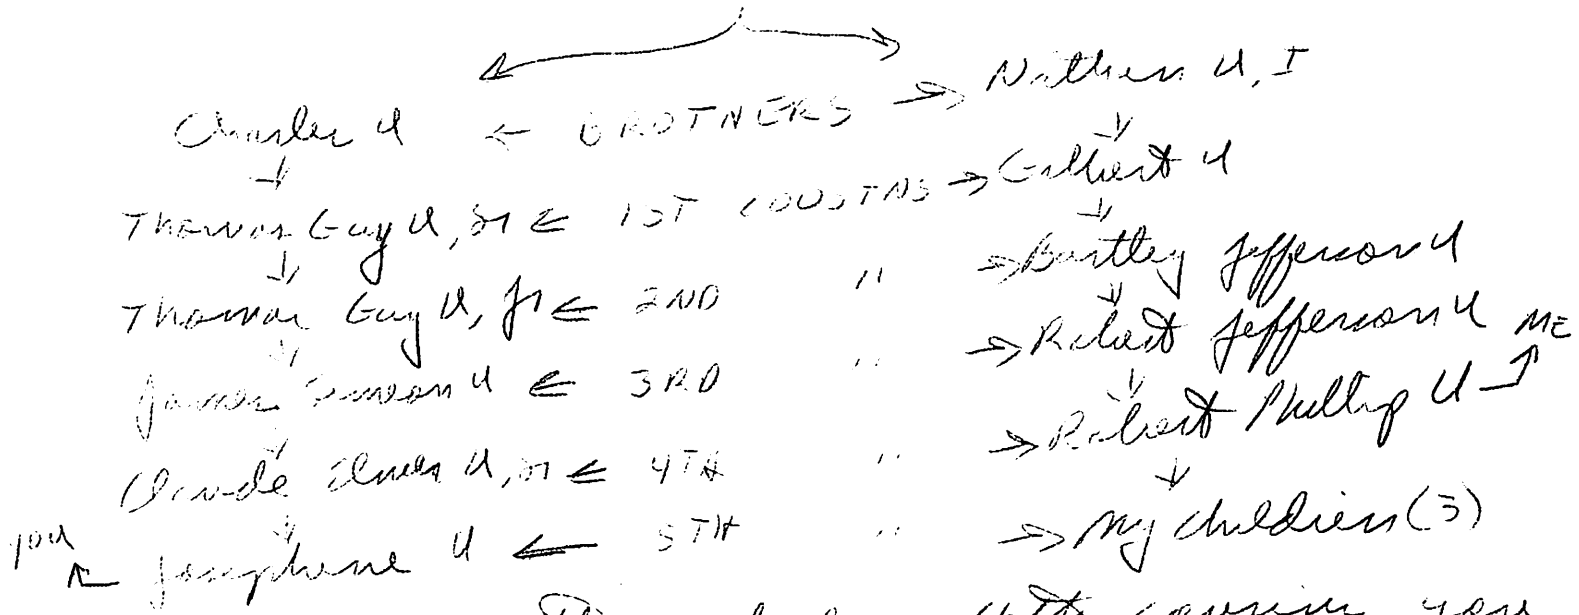 Charles U ← BROTHERS → Nathan U, I
Thomas Guy U, Sr ← 1ST COUSINS → Gilbert U
Thomas Guy U, Jr ← 2ND " → Bartley Jefferson U
James Simeon U ← 3RD " → Robert Jefferson U
ME
Claude U, Sr ← 4TH " → Robert Phillip U
you
Josephene U ← 5TH " → My children (3)
you